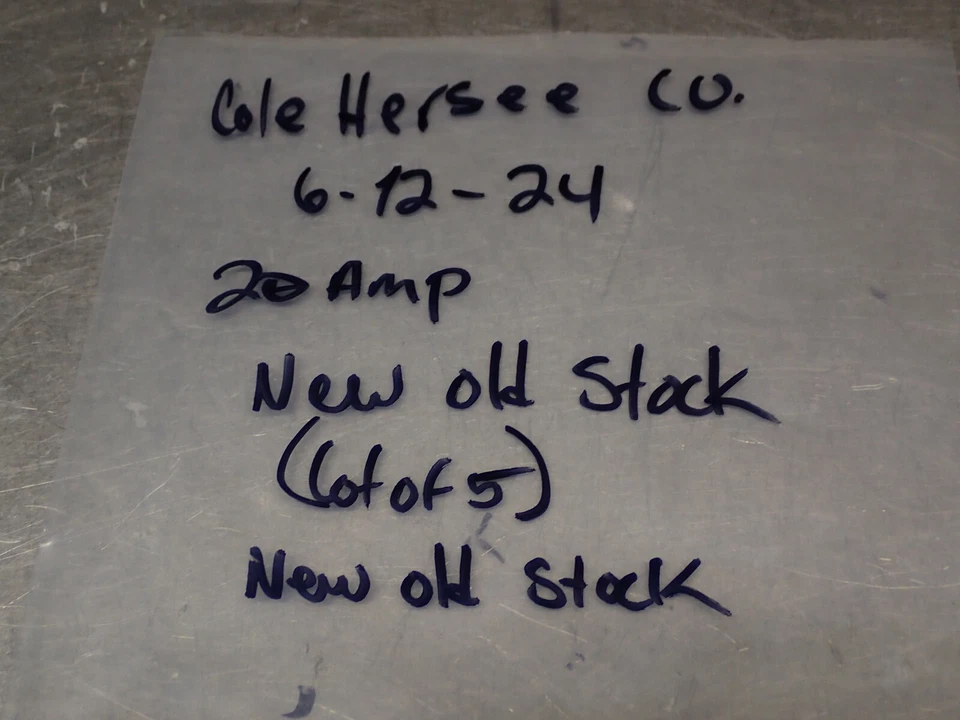 Cole Hersee Co.
6-12-24
20 Amp
New old Stock
(Lot of 5)
New old Stock